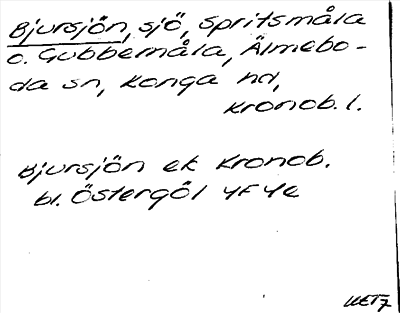 Bjursjön, sjö, Spritsmåla
o. Gubbemåla, Älmebo-
da sn, Konga hd,
Kronob. l.
Bjursjön ek Kronob.
bl. Östergöl 4F4e